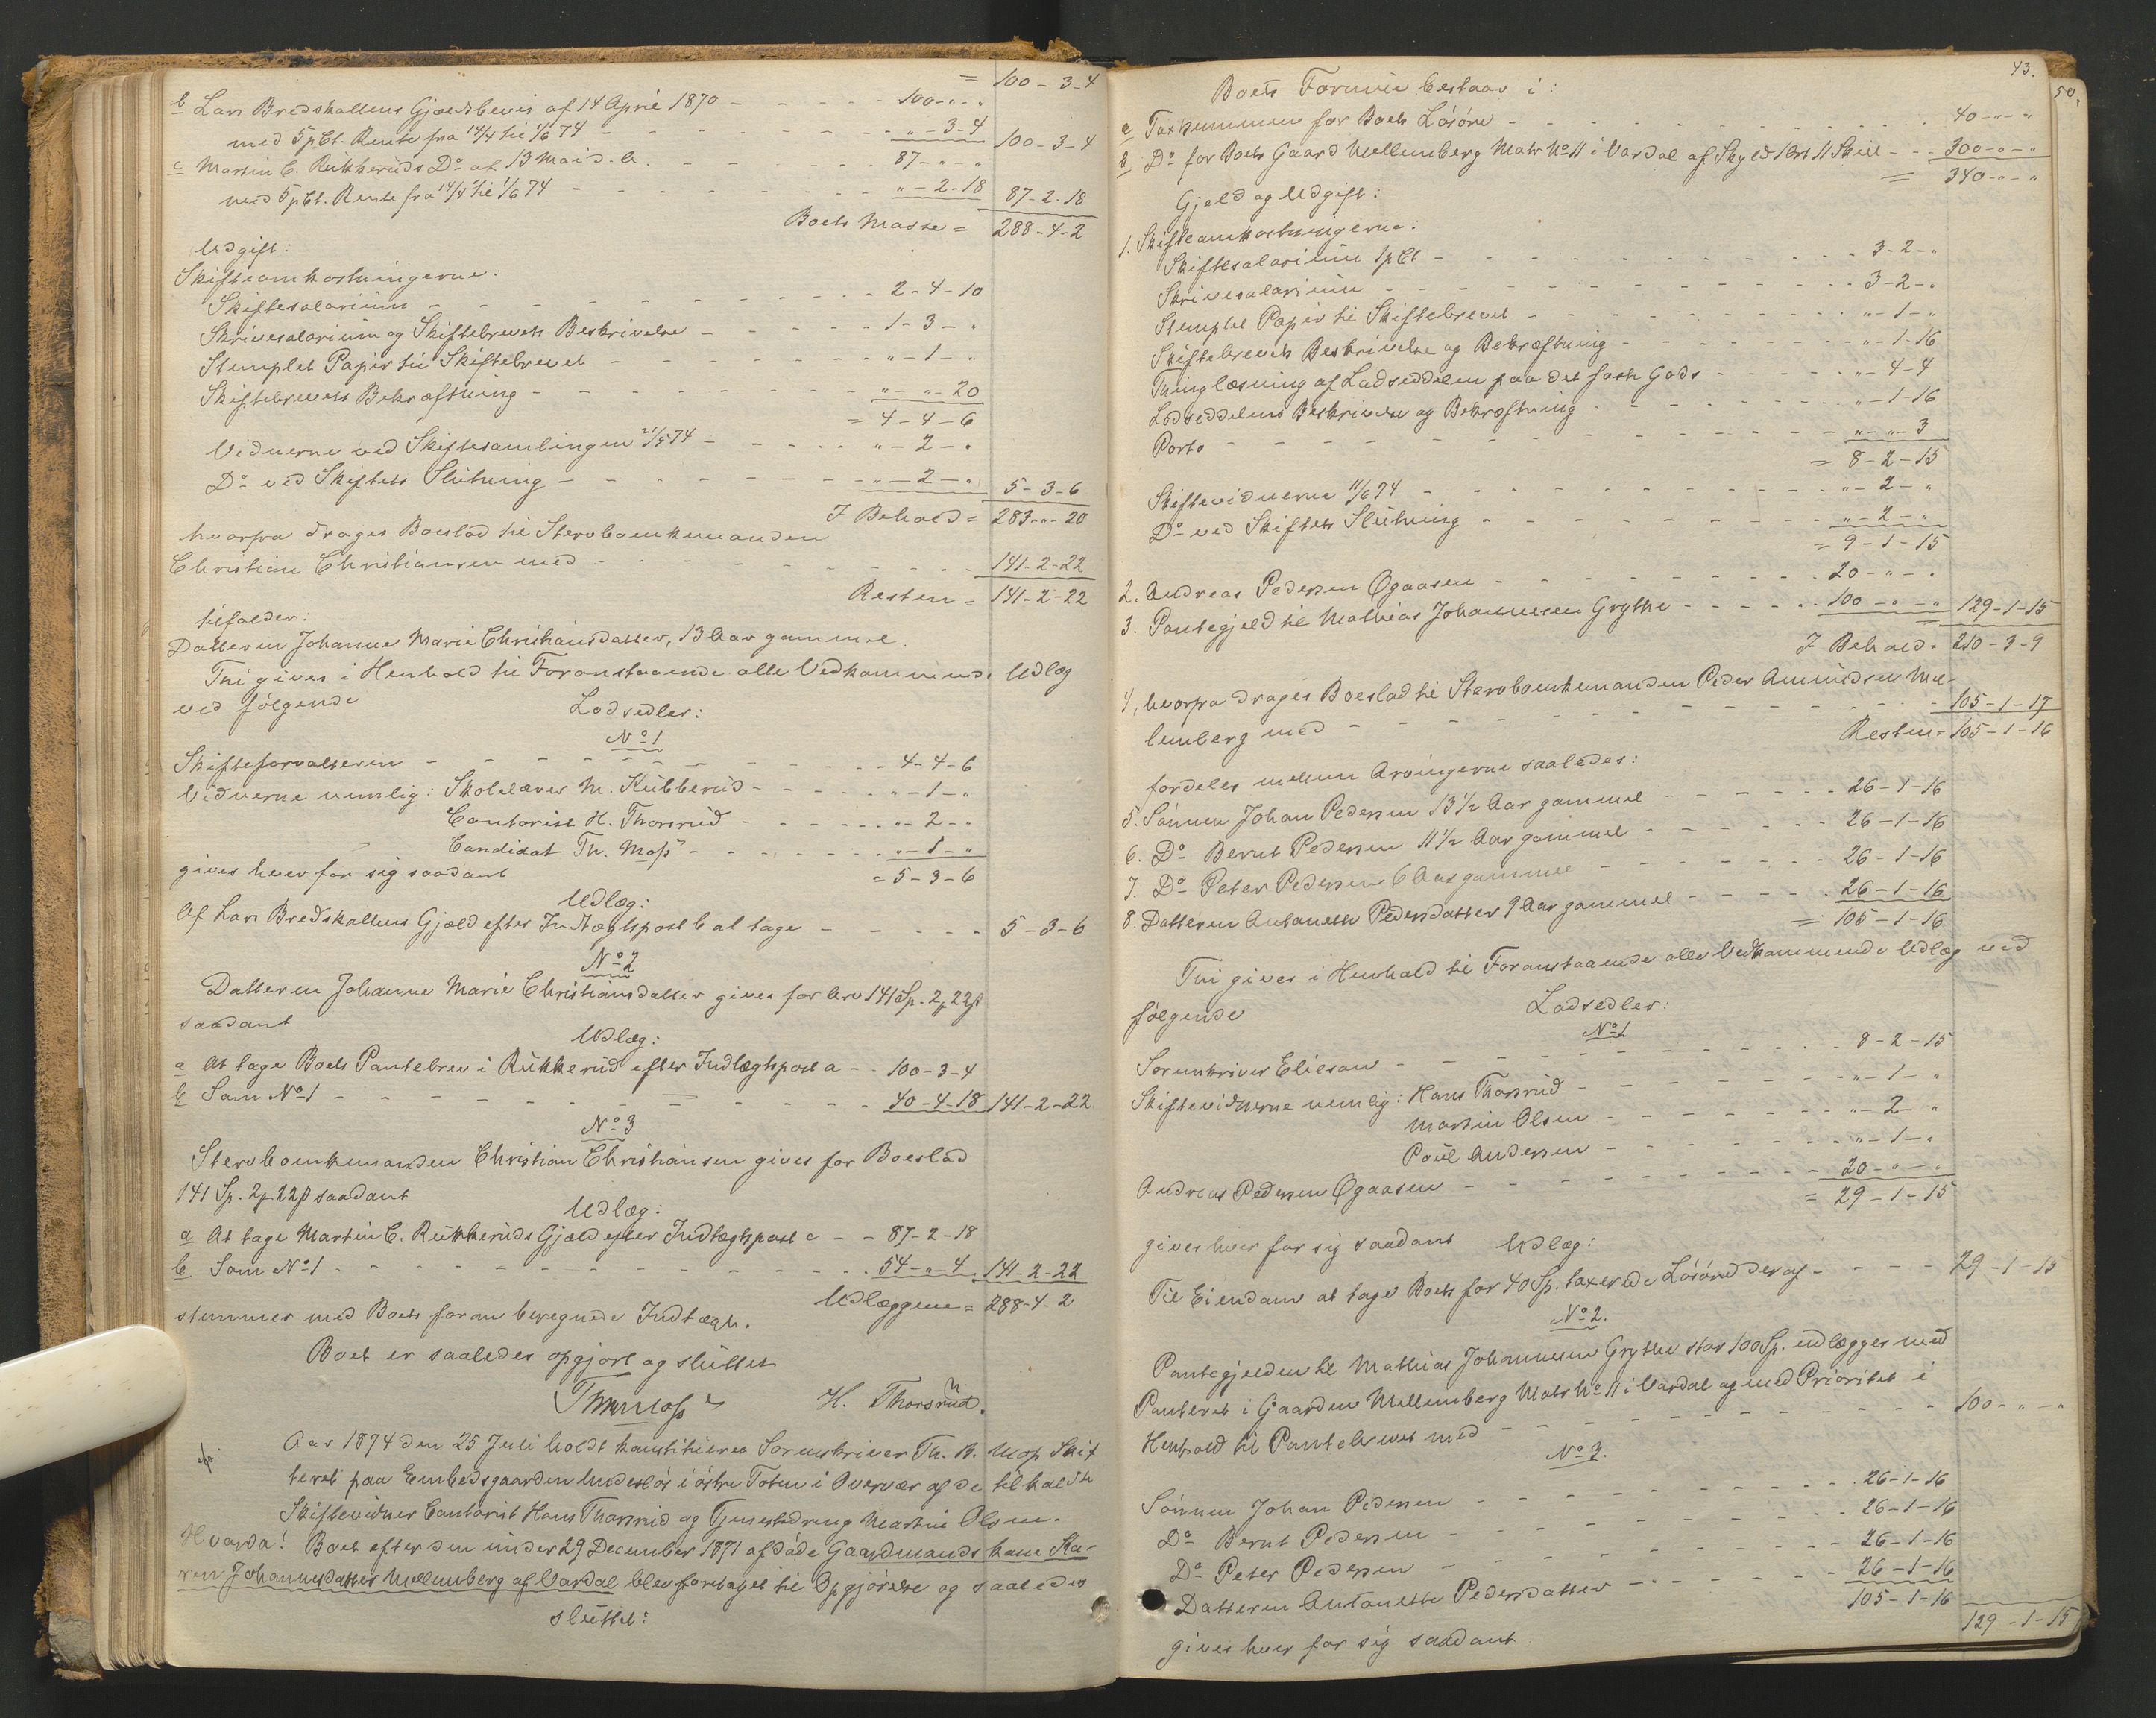 = 100-3-4
b Lars Bredskallens Gjældsbevis af 14 April 1870 - - - - - 100-„-„
med 5 pCt. Rente fra 14/4 til 1/6 74 - - - - - - - „-3-4 100-3-4
c Martin C. Rukkeruds Do af 13 Mai d. A. - - - - - 87-„-„
med 5 pCt. Rente fra 14/4 til 1/6 74 - - - - - - - „-2-18 87-2-18
Boets Masse = 288-4-2
Udgift:
Skifteomkostningerne:
Skiftesalarium - - - - - - - - 2-4-10
Skrivesalarium og Skiftebrevets Beskrivelse - - - - - 1-3-„
Stemplet Papir til Skiftebrevet - - - - - - „-1-„
Skiftebrevets Bekræftning - - - - - - - „-„-20
= 4-4-6
Vidnerne ved Skiftesamlingen 21/5 74 - - - - - „-2-„
Do ved Skiftets Slutning - - - - - - - „-2-„ 5-3-6
I Behold = 283-„-20
hvorfra drages Boeslod til Stervboenkemanden
Christian Christiansen med - - - - - - - - 141-2-22
Resten = 141-2-22
tilfalder:
Datteren Johanne Marie Christiansdatter, 13 Aar gammel.
Thi gives i Henhold til Foranstaaende alle Vedkommende Udlæg
ved følgende
Lodsedler:
No 1
Skifteforvalteren - - - - - - - - 4-4-6
Vidnerne nemlig: Skolelærer M. Kubberud - - - - - „-1-„
Contorist H. Thorsrud - - - - - „-2-„
Candidat Th. Moss - - - - - - „-1-„
gives hver for sig saadant = 5-3-6
Udlæg:
Af Lars Bredskallens Gjæld efter Indtægtspost b at tage - - - - - 5-3-6
No 2
Datteren Johanne Marie Christiansdatter gives for Arv 141 Sp. 2 22 ß
saadant
Udlæg:
a At tage Boets Pantebrev i Rukkerud efter Indtægtspost a - - 100-3-4
b Som No 1 - - - - - - - - - - 40-4-18 141-2-22
No 3
Stervboenkemanden Christian Christiansen gives for Boeslod
141 Sp. 2 22 ß saadant
Udlæg:
a At tage Martin C. Rukkeruds Gjæld efter Indtægtspost c - - 87-2-18
b Som No 1 - - - - - - - - - - - 54-„-4 141-2-22
Udlæggene = 288-4-2
stemmer med Boets foran beregnede Indtægt.
Boet er saaledes opgjort og sluttet
Th. Moss H. Thorsrud.
Aar 1874 den 25 Juli holdt konstitueret Sorenskriver Th. B. Moss Skif
teret paa Embedsgaarden Underløs i østre Toten i Overvær af de tilkaldte
Skiftevidner Contorist Hans Thorsrud og Tjenestedreng Martin Olsen.
Hvorda! Boet efter den under 29 December 1871 afdøde Gaardmandskone Ka-
ren Johannesdatter Mellemberg af Vardal blev foretaget til Opgjørelse og saaledes
sluttet:
43.
50.
Boets Formue bestaar i:
a Taxtsummen for Boets Løsøre - - - - - - - - - 40-„-„
b Do for Boets Gaard Mellemberg Matr No 11 i Vardal af Skyld 1 Ort 11 Skill - - 300-„-„
= 340-„-„
Gjeld og Udgift:
1. Skifteomkostningerne:
Skiftesalarium 1 pCt - - - - - - - - - 3-2-„
Skrivesalarium - - - - - - - - - - 3-2-„
Stemplet Papir til Skiftebrevet - - - - - - - „-1-„
Skiftebrevets Beskrivelse og Bekræftning - - - - - - „-1-16
Thinglæsning af Lodseddelen paa det faste Gods - - - - - „-4-4
Lodseddelens Beskrivelse og Bekræftning - - - - - - „-1-16
Porto - - - - - - - - - - - - „-„-3
= 8-2-15
Skiftevidnerne 11/6 74 - - - - - - - - - „-2-„
Do ved Skiftets Slutning - - - - - - - - „-2-„
= 9-1-15
2. Andreas Pedersen Øgaasen - - - - - - - - 20-„-„
3. Pantegjeld til Mathias Johannesen Grythe - - - - - 100-„-„ 129-1-15
I Behold = 210-3-9
4, hvorfra drages Boeslod til Stervboenkemanden Peder Amundsen Mel-
lemberg med - - - - - - - - - - - - 105-1-17
Resten = 105-1-16
fordeles mellem Arvingerne saaledes:
5. Sønnen Johan Pedersen 13 1/2 Aar gammel - - - - - - 26-1-16
6. Do Bernt Pedersen 11 1/2 Aar gammel - - - - - - 26-1-16
7. Do Peter Pedersen 6 Aar gammel - - - - - - - 26-1-16
8. Datteren Antonette Pedersdatter 9 Aar gammel - - - - - 26-1-16
= 105-1-16
Thi gives i Henhold til Foranstaaende alle Vedkommende Udlæg ved
følgende
Lodsedler:
No 1
Sorenskriver Elieson - - - - - - - - - 8-2-15
Skiftevidnerne nemlig: Hans Thorsrud - - - - - - - „-1-„
Martin Olsen - - - - - - - „-2-„
Poul Andersen - - - - - - - „-1-„
Andreas Pedersen Øgaasen - - - - - - - - - 20-„-„
= 29-1-15
gives hver for sig saadant
Udlæg:
Til Eiendom at tage Boets for 40 Sp. taxerede Løsøre deraf - - - - - 29-1-15
No 2.
Pantegjelden til Mathias Johannesen Grythe stor 100 Sp. udlægges med
Panteret i Gaarden Mellemberg Matr No 11 i Vardal og med Prioritet i
Henhold til Pantebrevet med - - - - - - - - - - 100-„-„
No 3.
Sønnen Johan Pedersen - - - - - - - - 26-1-16
Do Bernt Pedersen - - - - - - - - 26-1-16
Do Peter Pedersen - - - - - - - - 26-1-16
Datteren Antonette Pedersdatter - - - - - - 26-1-16
105-1-16
gives hver for sig saadant 129-1-15